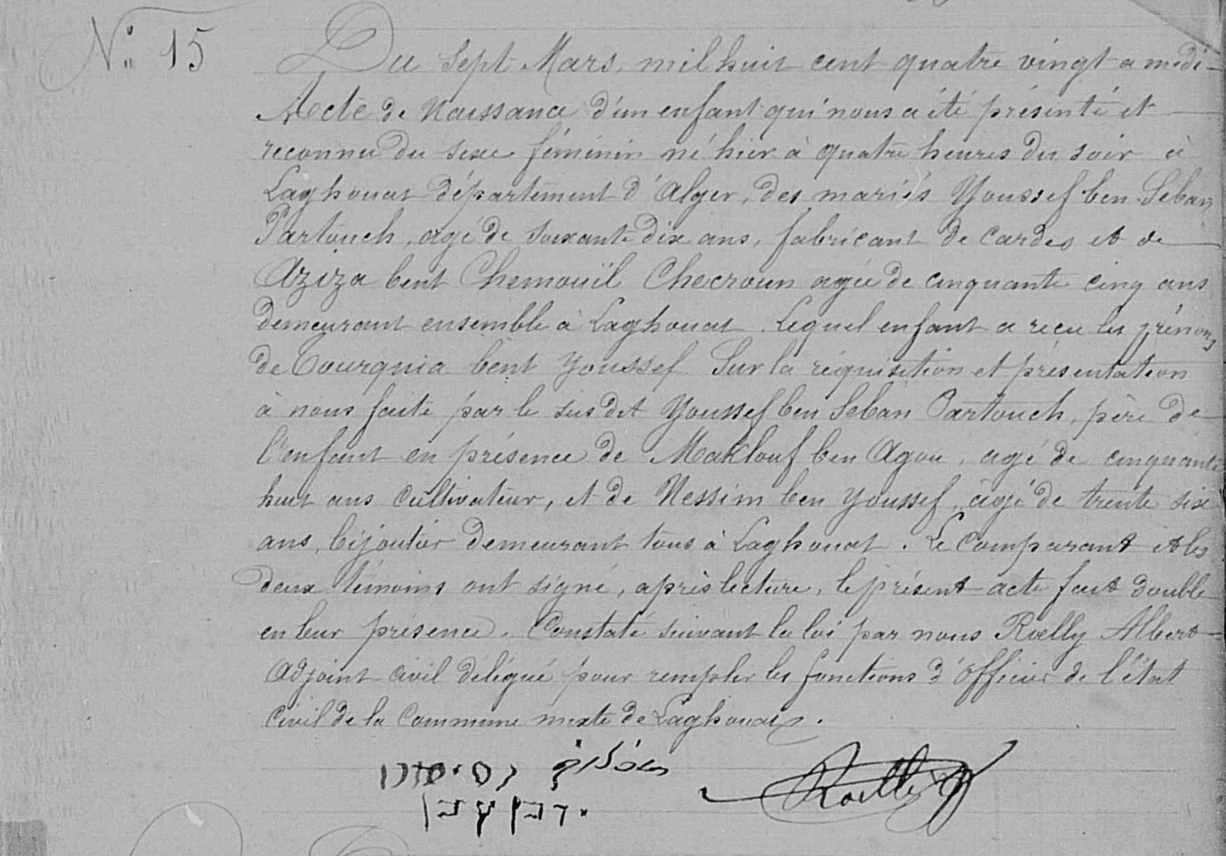 N° 15
Du sept Mars, mil huit cent quatre vingt a midi
Acte de Naissance d'un enfant qui nous a été présenté et
reconnu du sexe féminin né hier à quatre heures du soir à
Laghouat département d'Alger, des mariés Youssef ben Seban
Partouch, agé de soixante dix ans, fabricant de cardes et de
Aziza bent Chemouïl Checroun agée de cinquante cinq ans
demeurant ensemble à Laghouat. Lequel enfant a reçu les prénoms
de Tourquia bent Youssef Sur la réquisition et présentation
à nous faite par le sus dit Youssef ben Seban Partouch, père de
l'enfant en présence de Maklouf ben Agou, age de cinquante
huit ans cultivateur, et de Nessim ben Youssef, âgé de trente six
ans, bijoutier demeurant tous à Laghouat. Le Comparant et les
deux témoins ont signé, après lecture, le présent acte fait double
en leur présence. Constaté suivant la loi par nous Rœlly Albert
Adjoint civil délégué pour remplir les fonctions d'Officier de l'état
Civil de la Commune mixte de Laghouat.
Rœlly